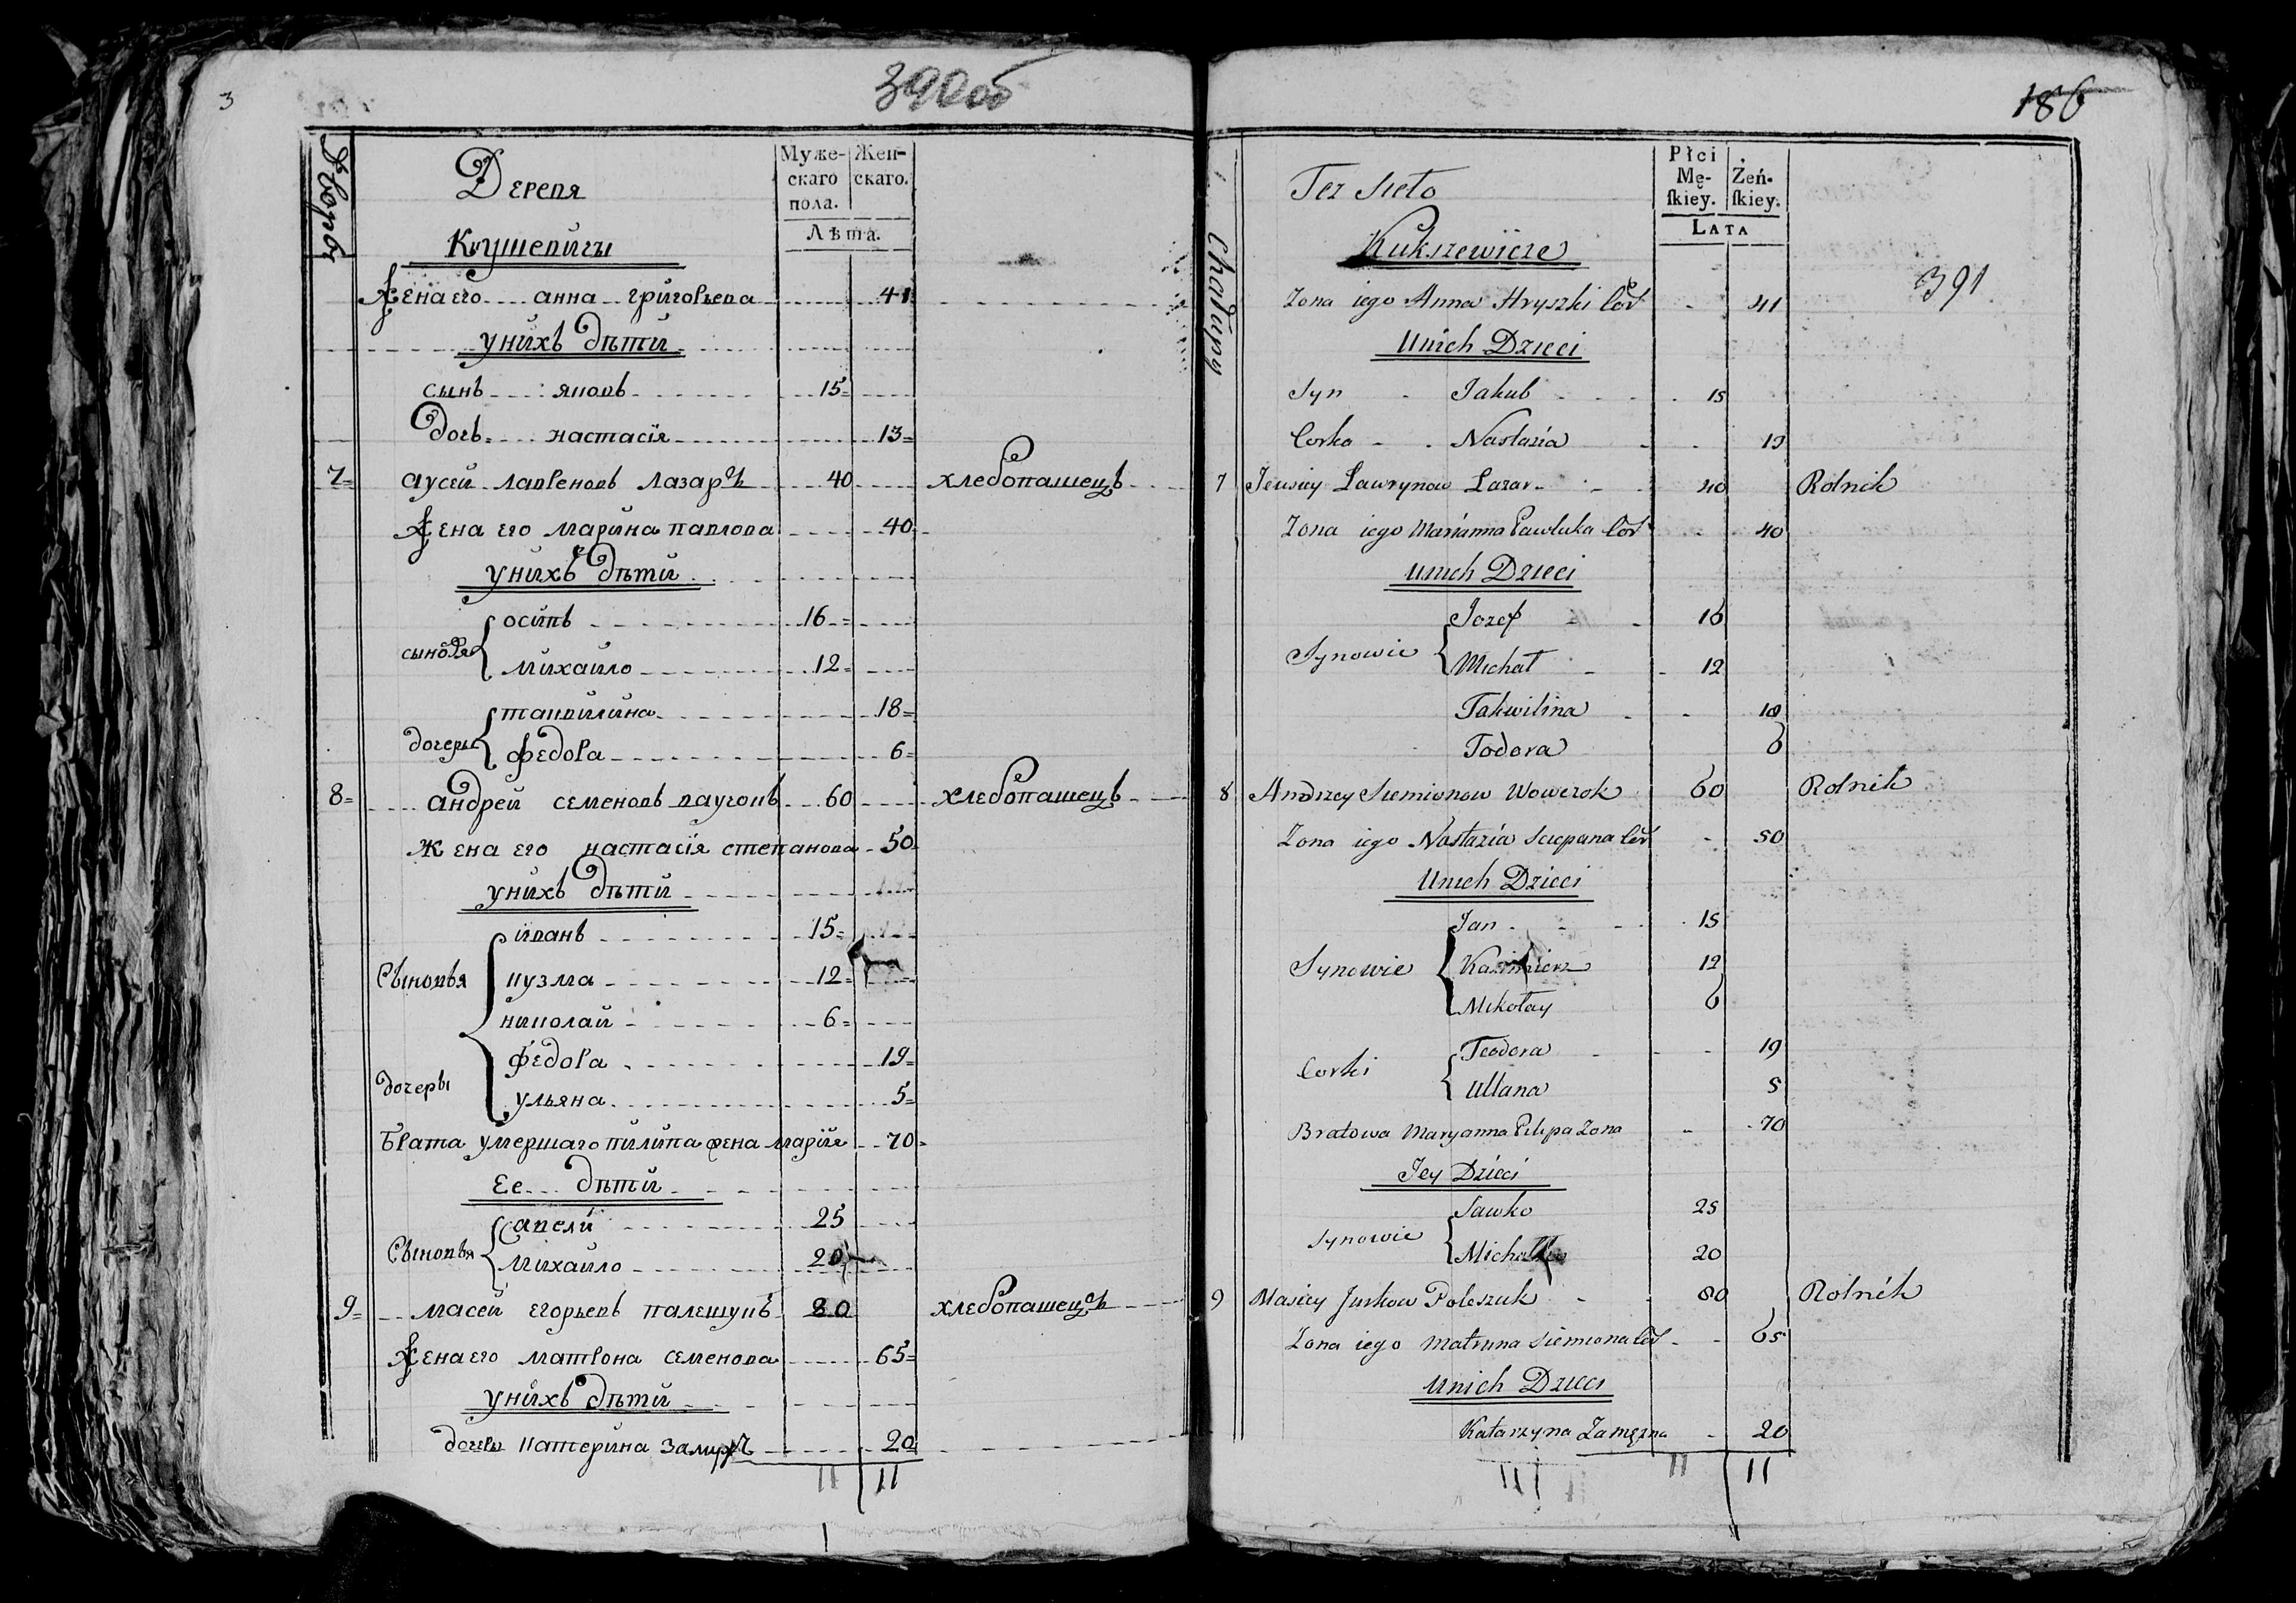 3
390об
Дворы
Деревя
Кукшевичи
Муже-
скаго
пола.
Жен-
скаго.
Лѣта.
Жена его анна григорьева 41
у нихъ дѣти
сынъ яковъ 15
дочь настасія 13
7 аусей лавреновъ лазарь 40 хлебопашецъ
Жена его марина павлова 40
у нихъ дѣти
сыновя
осипъ 16
михайло 12
дочеры
таквилина 18
федора 6
8 андрей семеновъ ваучокъ 60 хлебопашецъ
Жена его настасія степанова 50
у нихъ дѣти
Сыновья
иванъ 15
кузма 12
николай 6
дочеры
федора 19
ульяна 5
Брата умершаго пилипа жена марія 70
Ее дѣти
Сыновья
Савели 25
михайло 20
9 масей егорьевъ палешукъ 80 хлебопашецъ
Жена его матрона семенова 65
у нихъ дѣти
дочеры катерина 20
11 11
186
391
Chałupy
Też Sieło
Kukszewicze
Płci
Mę-
skiey.
Żeń-
skiey.
LATA
Zona iego Anna Hryszki Cor 41
Unich Dzieci
Syn Jakub 15
Corka Nastazia 13
7 Jewsiey Ławrynow Łazar 40 Rolnik
Zona iego Marianna Pawluka Cor 40
Unich Dzieci
Synowie
Jozef 16
Michał 12
Takwilina 18
Todora 6
8 Andrzey Siemionow Wowczok 60 Rolnik
Zona iego Nastazia Sciepana Cor 50
Unich Dzieci
Synowie
Jan 15
Kazimierz 12
Mikołay 6
Corki
Teodora 19
Ullana 5
Bratowa Maryanna Pilipa Zona 70
Jey Dzieci
Synowie
Sawko 25
Michałko 20
9 Masiey Jurkow Poleszuk 80 Rolnik
Zona iego Matruna Siemiona Cor 65
Unich Dzieci
Katarzyna Zamęzna 20
11 11